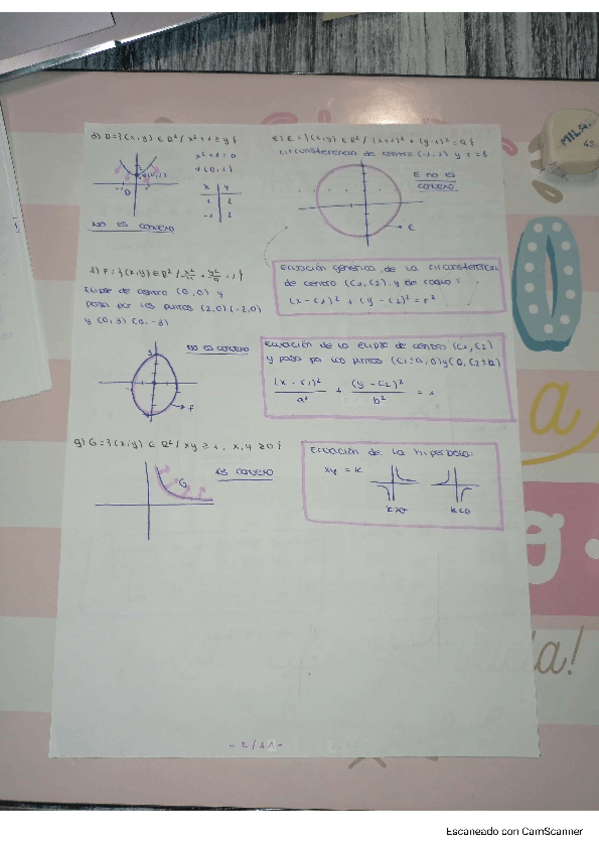 d) D={(x,y) ∈ R² / x²+1 ≥ y}
x²+1=0
V(0,1)
x y
1 2
-1 2
D
NO ES CONVEXO
e) E={(x,y) ∈ R² / (x+1)² + (y-1)² = 9}
circunsferencia de centro (-1,1) y r=3
E NO ES
CONVEXO
E
f) F={(x,y) ∈ R² / x²/4 + y²/9 = 1}
Elipse de centro (0,0) y
pasa por los puntos (2,0) (-2,0)
y (0,3) (0,-3)
NO ES CONVEXO
F
Ecuación genérica de la circunsferencia
de centro (C1,C2) y de radio:
(x-C1)² + (y-C2)² = r²
Ecuación de la elipse de centro (C1,C2)
y pasa por los puntos (C1±a,0) y (0,C2±b)
(x-C1)²/a² + (y-C2)²/b² = 1
g) G={(x,y) ∈ R² / xy ≥ 1, x,y ≥ 0}
G
ES CONVEXO
Ecuación de la hipérbola:
xy = K
K>0 K<0
MILA
Escaneado con CamScanner